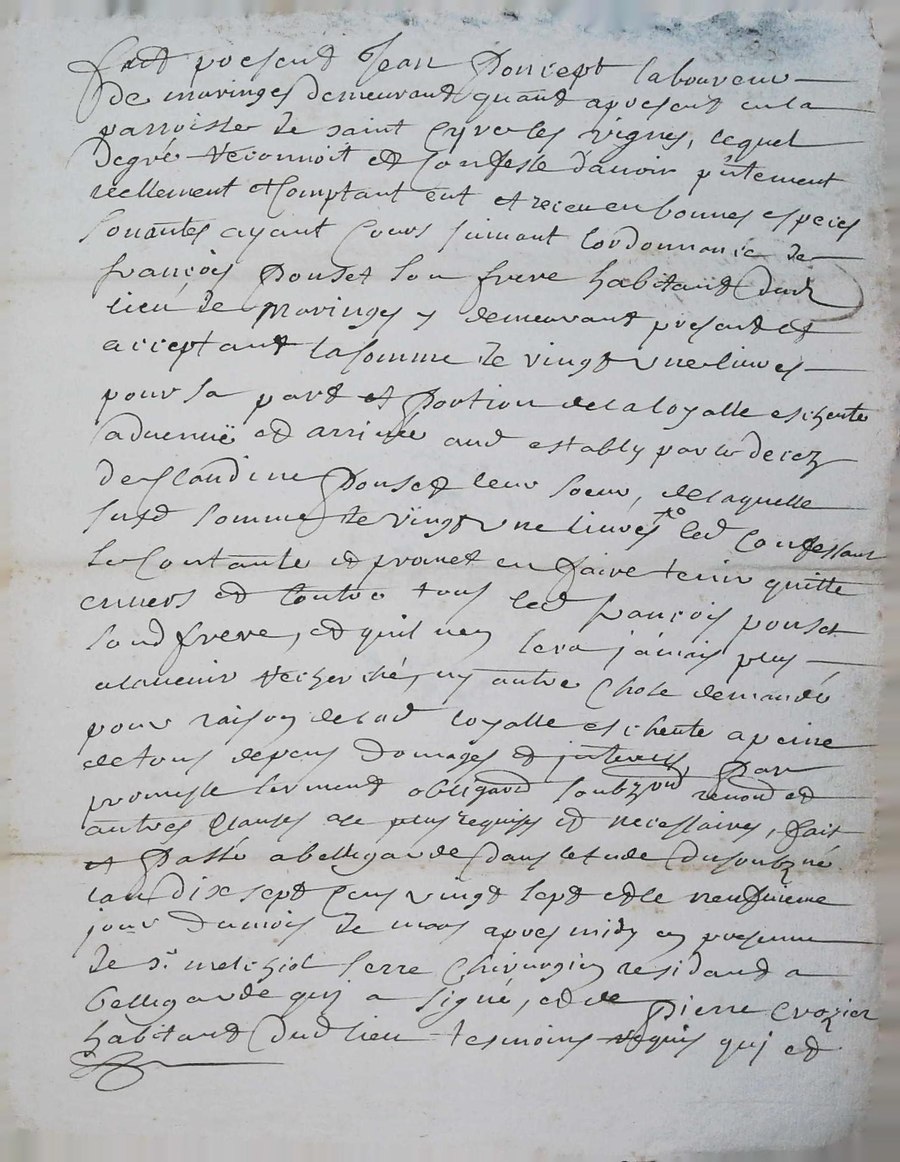 fut présent Jean Poncept laboureur
de maringes demeurant quand apresent en la
parroisse de saint Cyre les vignes, lequel
degré reconnoit et Confesse d'auoir pntement
reellement et Comptant eut et receu en bonnes especes
sonantes ayant Cours suiuant lordonnance de
françois Ponset son frere habitant dud
lieu de Maringes y demeurant present et
acceptant la somme de vingt une liures
pour sa part et Portion de la loyalle escheute
aduenuë et arriuée aud estably par le decez
de Claudine Ponset leur soeur, de laquelle
susd somme de vingt une liures led Confessant
se Contante et promet en faire tenir quitte
enuers et Contre tous led françois ponset
sond frere, et quil nen sera jamais plus
alauenir recherché, ny autre Chose demandé
pour raison de lad loyalle escheute a peine
de tous depens Domages et jnterests, Par
promesse serment obligation soubz renon et
autres Clauses ace plus requises et necessaires, fait
et Passé a bellegarde dans letude du soubzné
lan dix sept Cens vingt sept et le neufuieme
jour du mois de mars apres midy en presence
de Sr melchiol serre Chirurgien residant a
bellegarde quj a signé, et de Pierre Crozier
habitant dud lieu tesmoins requis quj et